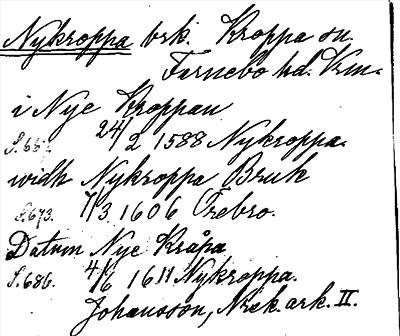 Nykroppa brk. Kroppa sn.
Fernebo hd. Vrm.
i Nye Kroppan
S. 667. 24/2 1588 Nykroppa.
widh Nykroppa Bruk
S. 673. 7/3 1606 Örebro.
Datum Nye Kråpa
S. 686. 4/6 1611 Nykroppa.
Johansson, Norek. ark. II.